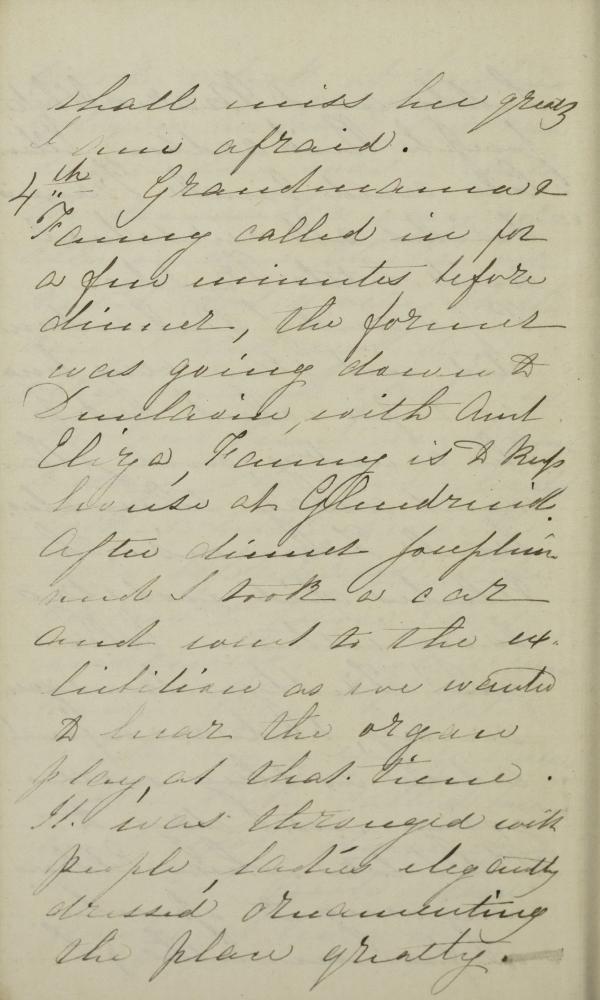 shall miss her greatly
I am afraid.
4th Grandmama &
Fanny called in for
a few minutes before
dinner, the former
was going down to
Dunlavin, with Aunt
Eliza, Fanny is to keep
house at Glendruid.
After dinner Josephine
and I took a car
and went to the ex-
hibition as we wanted
to hear the organ
play, at that time.
It was thronged with
people, ladies elegantly
dressed ornamenting
the place greatly.